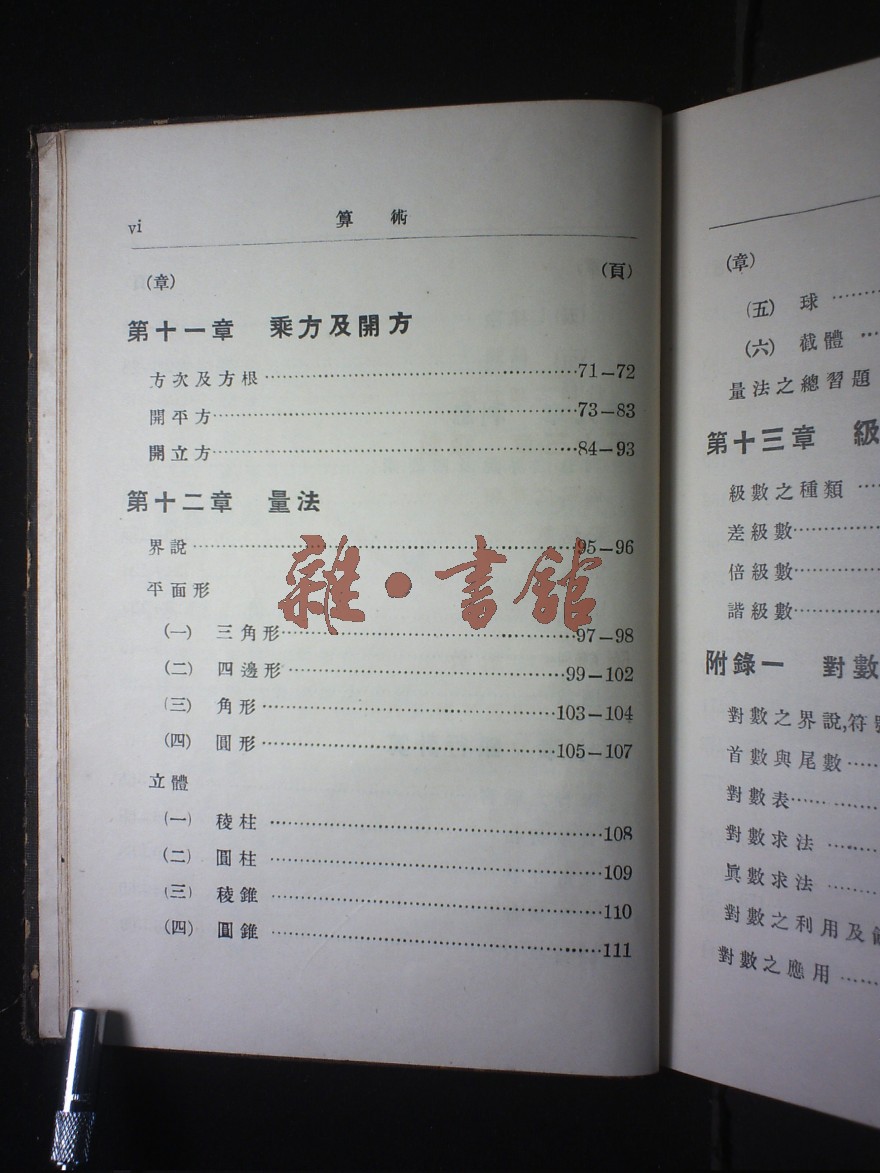 vi 算術
(章) (頁)
第十一章 乘方及開方
方次及方根……71—72
開平方……73—83
開立方……84—93
第十二章 量法
界說……95—96
平面形
(一) 三角形……97—98
(二) 四邊形……99—102
(三) 角形……103—104
(四) 圓形……105—107
立體
(一) 稜柱……108
(二) 圓柱……109
(三) 稜錐……110
(四) 圓錐……111
雜·書館
(章)
(五) 球……
(六) 截體……
量法之總習題
第十三章 級
級數之種類……
差級數……
倍級數……
諧級數……
附錄一 對數
對數之界說,符
首數與尾數……
對數表……
對數求法……
眞數求法……
對數之利用及
對數之應用……